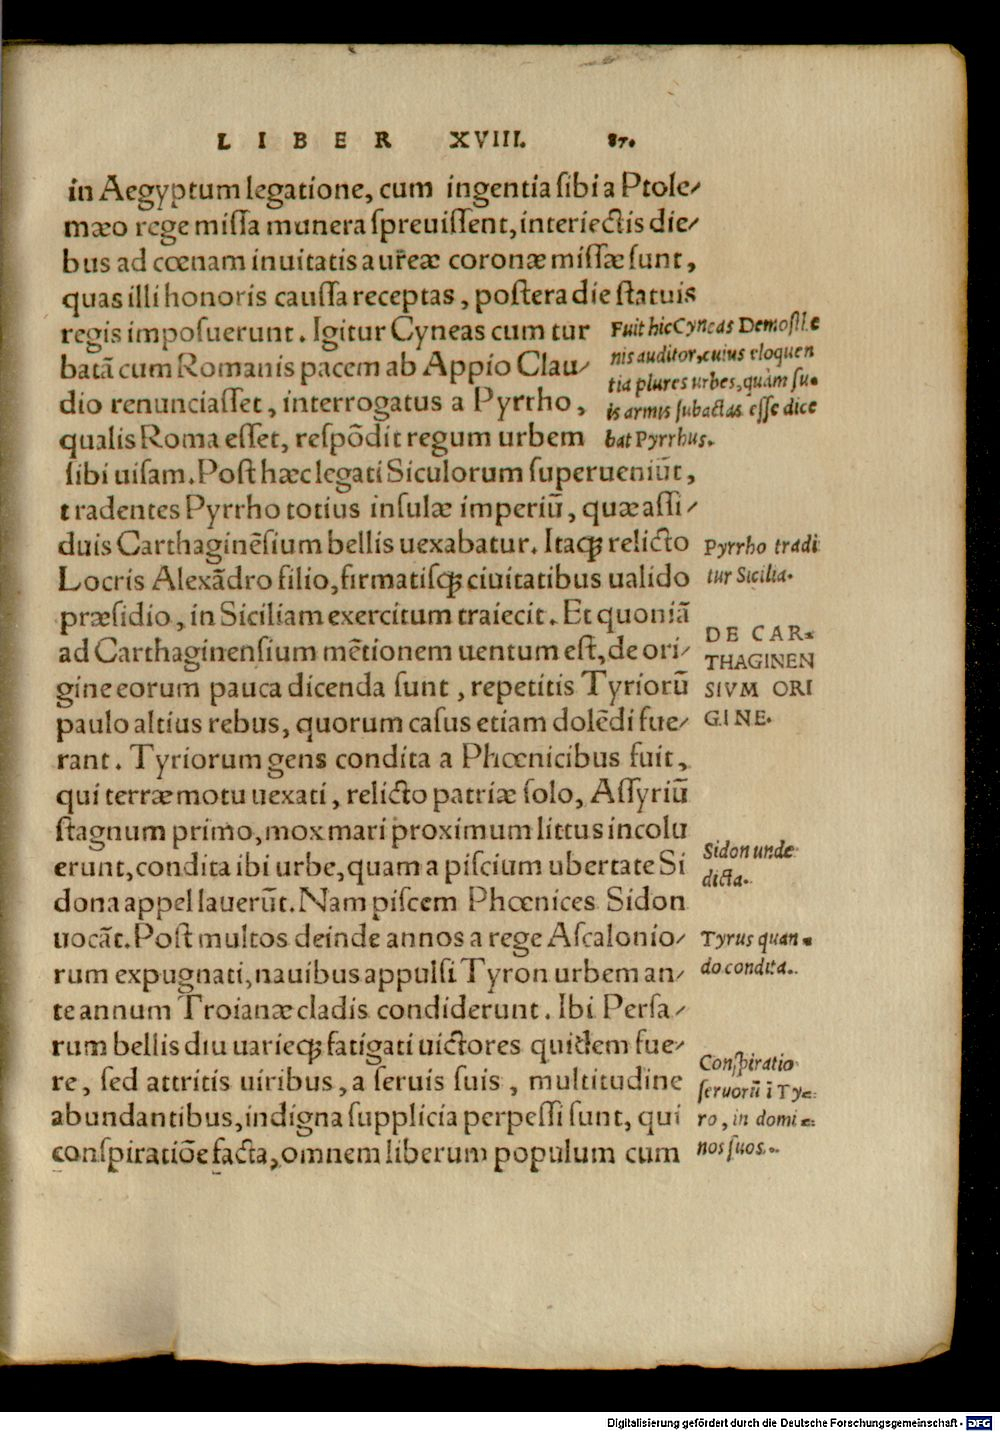 LIBER XVIII. 87.
in Aegyptum legatione, cum ingentia ſibi a Ptole⸗
mæo rege miſſa munera ſpreuiſſent, interiectis die⸗
bus ad cœnam inuitatis aureæ coronæ miſſæ ſunt,
quas illi honoris cauſſa receptas, poſtera die ſtatuis
regis impoſuerunt. Igitur Cyneas cum tur
batã cum Romanis pacem ab Appio Clau⸗
dio renunciaſſet, interrogatus a Pyrrho,
qualis Roma eſſet, reſpõdit regum urbem
ſibi uiſam. Poſt hæc legati Siculorum ſuperueniũt,
tradentes Pyrrho totius inſulæ imperiũ, quæ aſſi⸗
duis Carthaginẽſium bellis uexabatur. Itaqꝫ relicto
Locris Alexãdro filio, firmatiſqꝫ ciuitatibus ualido
præſidio, in Siciliam exercitum traiecit. Et quoniã
ad Carthaginenſium mẽtionem uentum eſt, de ori⸗
gine eorum pauca dicenda ſunt, repetitis Tyriorũ
paulo altius rebus, quorum caſus etiam dolẽdi fue⸗
rant. Tyriorum gens condita a Phœnicibus fuit,
qui terræmotu uexati, relicto patriæ ſolo, Aſſyriũ
ſtagnum primo, mox mari proximum littus incolu
erunt, condita ibi urbe, quam a piſcium ubertate Si
dona appellauerũt. Nam piſcem Phœnices Sidon
uocãt. Poſt multos deinde annos a rege Aſcalonio⸗
rum expugnati, nauibus appulſi Tyron urbem an⸗
te annum Troianæ cladis condiderunt. Ibi Perſa⸗
rum bellis diu uarieqꝫ fatigati uictores quidem fue⸗
re, ſed attritis uiribus, a ſeruis ſuis, multitudine
abundantibus, indigna ſupplicia perpeſſi ſunt, qui
conſpiratiõe facta, omnem liberum populum cum
Fuit hic Cyneas Demoſthe
nis auditor, cuius eloquen
tia plures urbes, quàm ſu⸗
is armis ſubactas eſſe dice
bat Pyrrhus.
Pyrrho tradi
tur Sicilia.
DE CAR⸗
THAGINEN
SIVM ORI
GINE.
Sidon unde
dicta.
Tyrus quan⸗
do condita.
Conſpiratio
ſeruorũ ĩ Ty⸗
ro, in domi⸗
nos ſuos.
Digitalisierung gefördert durch die Deutsche Forschungsgemeinschaft - DFG